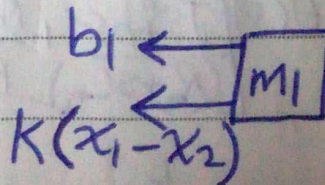 b₁
m₁
K(x₁-x₂)